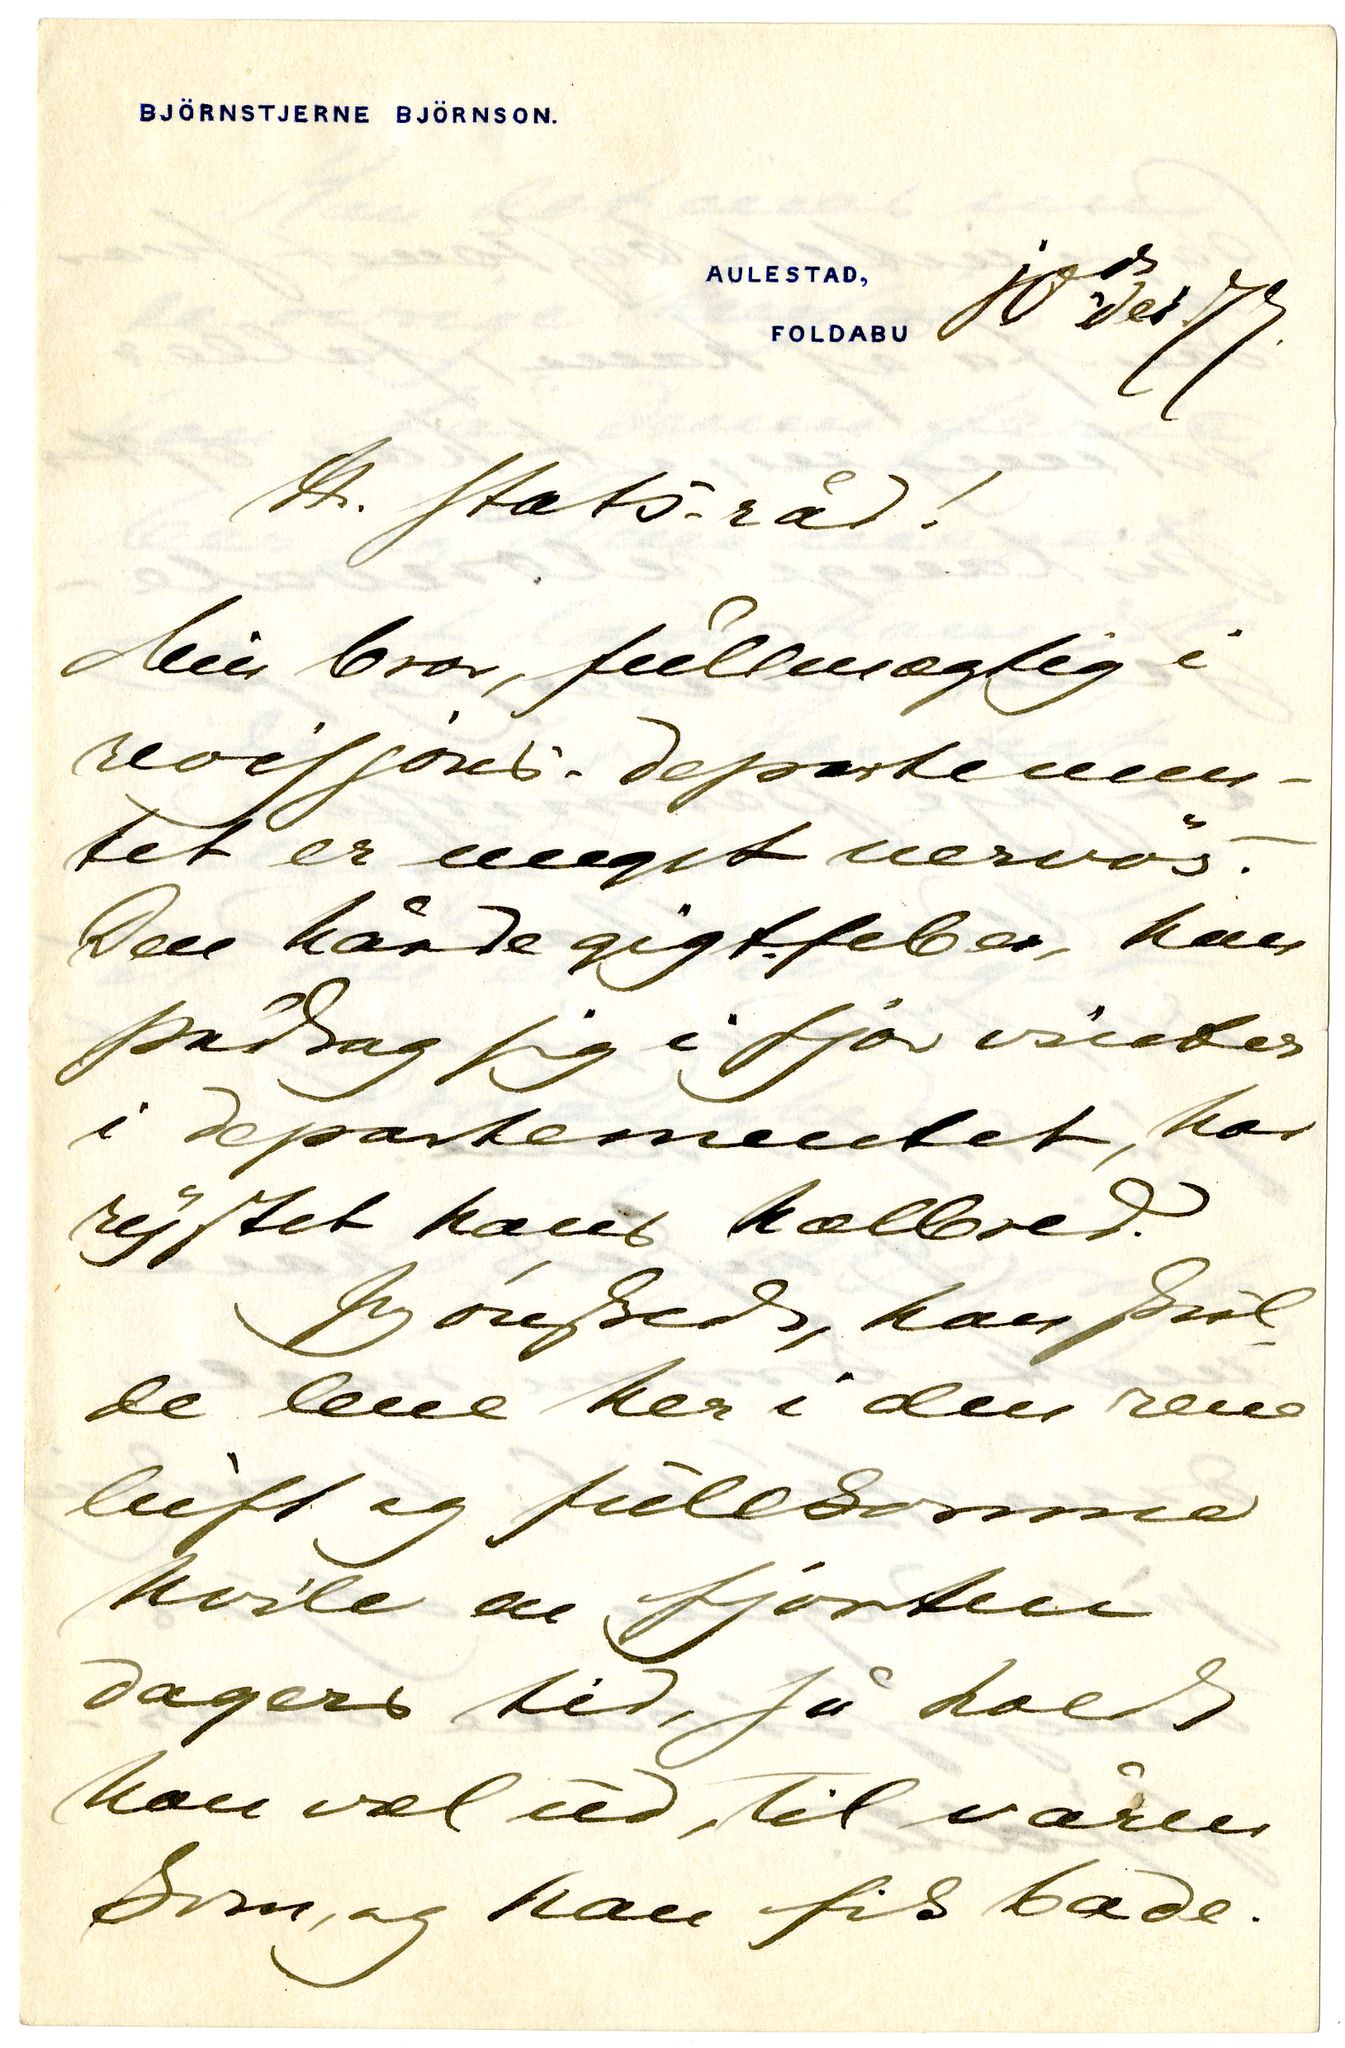 BJÖRNSTJERNE BJÖRNSON.
AULESTAD,
FOLDABU
10 des 77.
Hr. stats-råd!
Min bror, fullmægtig i
revisjons-departemen-
tet er meget nervös.
Den hårde gigt-feber, han
pådrog sig i fjor vinter
i departementet, har
rystet hans hælbred.
Jeg ønskede, han skul-
de leve her i den rene
luft og fullkomne
hvile en fjorten
dagers tid, så holdt
han vel ud, til våren
kom, og han fik bade.